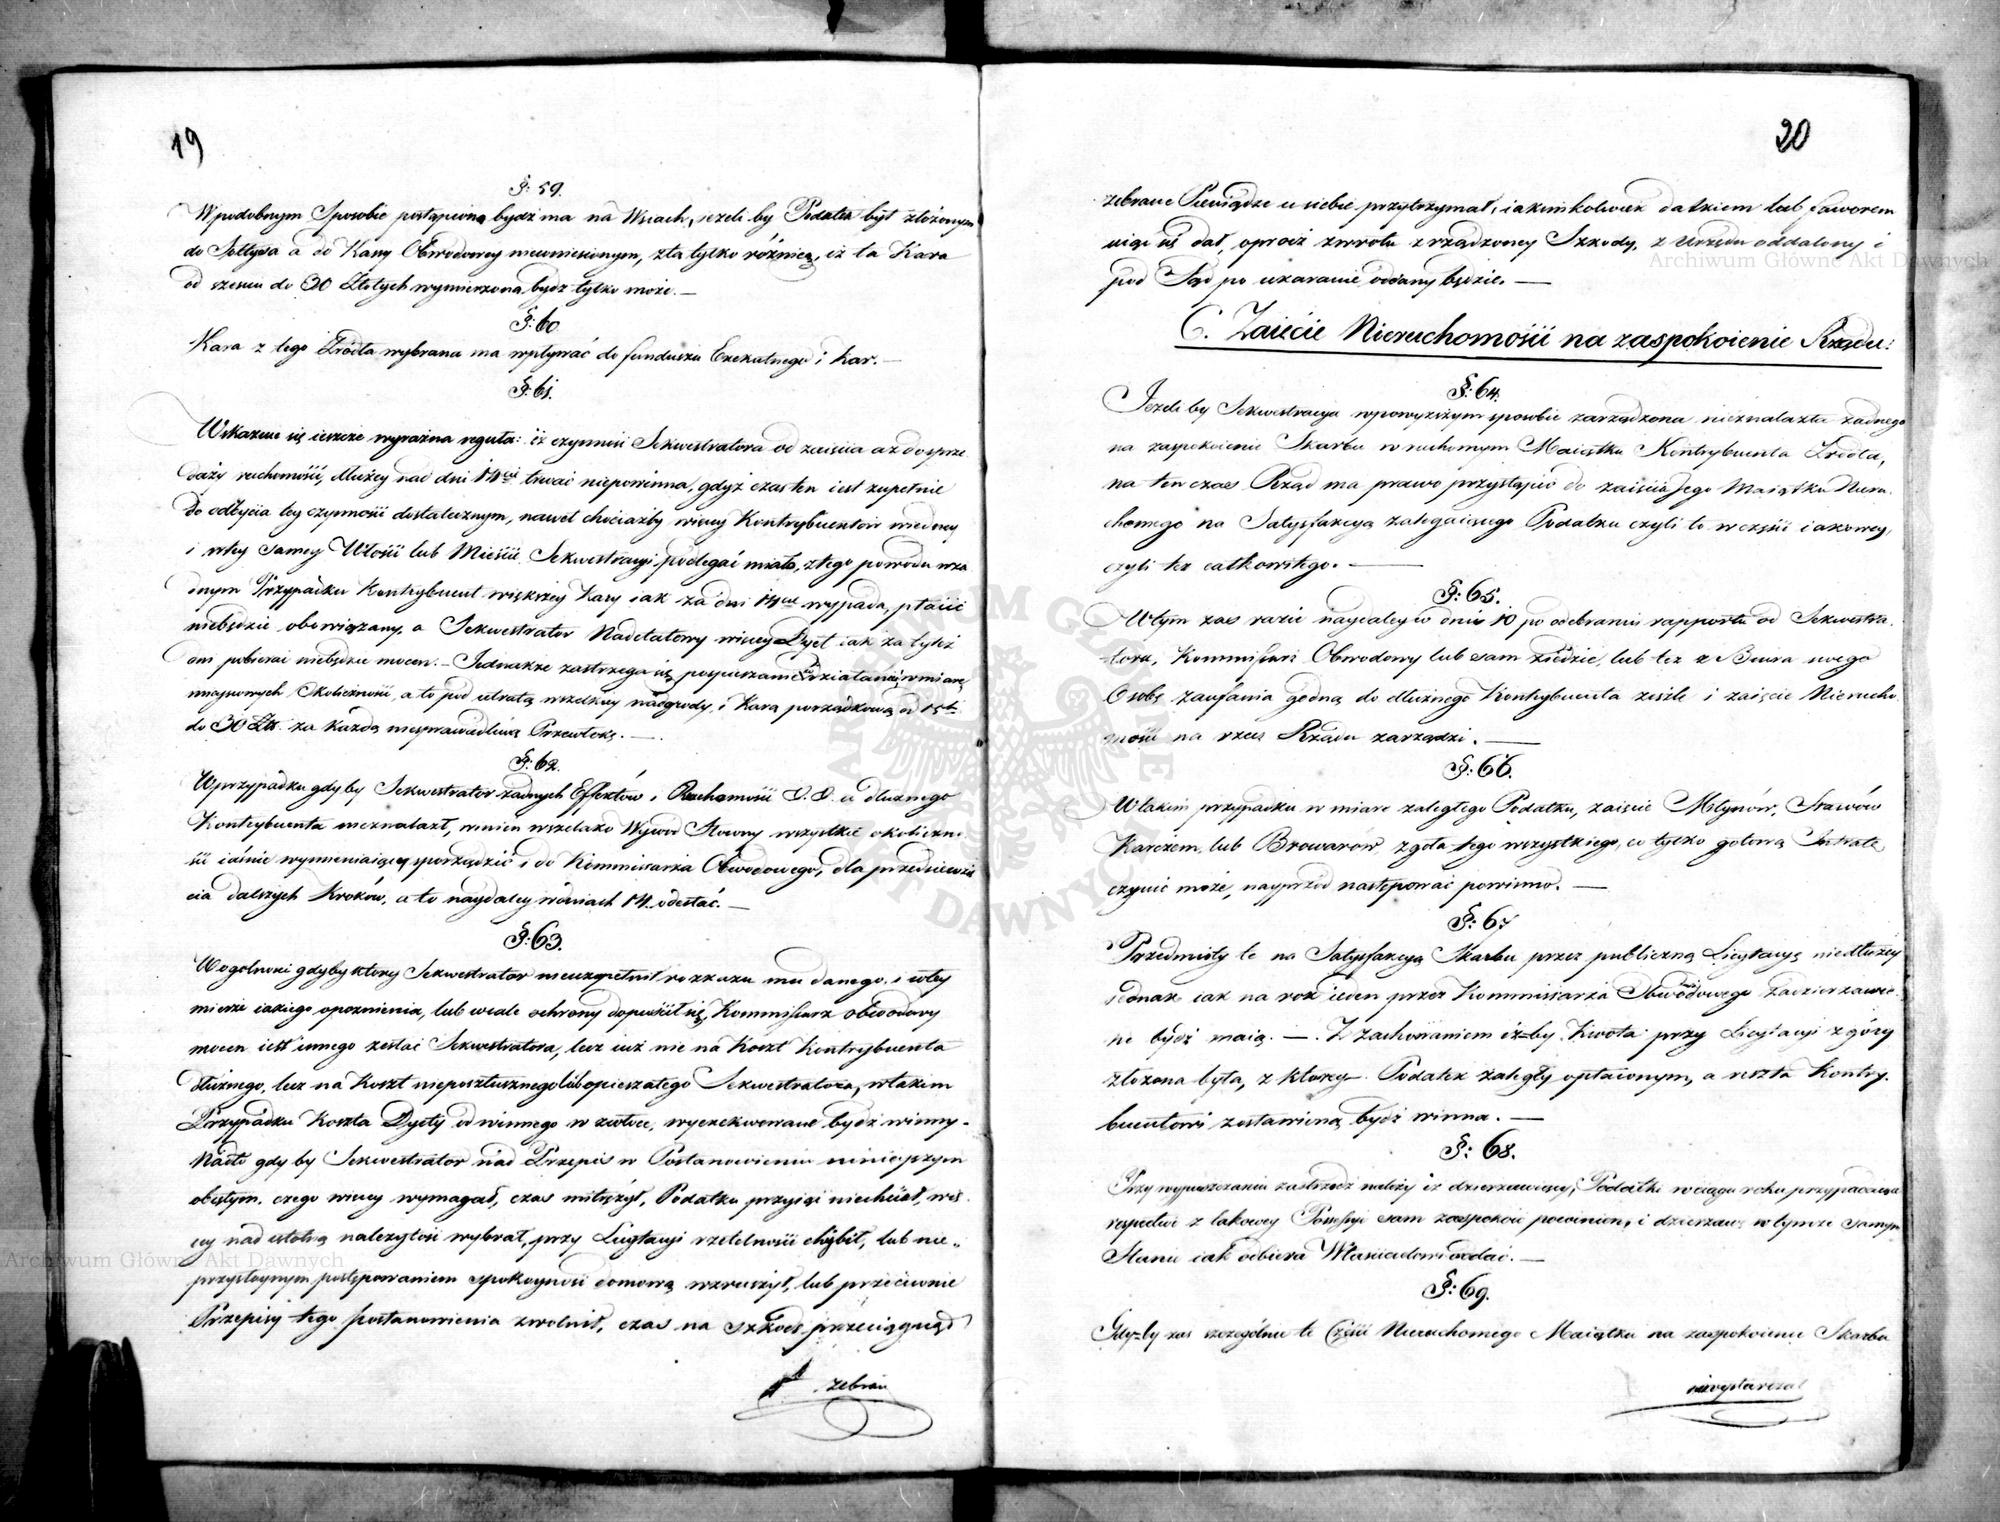 19
§: 59.
W podobnym Sposobie postąpiono bydź ma na Wsiach, jezeli by Podatek był złożonym
do Sołtysa a do Kassy Obwodowey niewniesionym, z tą tylko różnicą, iż ta Kara
od szesciu do 30 Złotych wymierzoną bydź tylko może. —
§: 60
Kara z tego Źrodła wybrana ma wpływać do funduszu Exekutnego i kar. —
§: 61.
Wskazuie się ieszcze wyraźna reguła: iż czynność Sekwestratora od zaięcia aż do sprze
daży ruchomości, dłużey nad dni 14cie trwać niepowinna, gdyż czas ten iest zupełnie
do odbycia tey czynności dostatecznym, nawet chociażby więcey Kontrybuentow w iedney
i w tey samey Włości lub Mieście Sekwestracyi podlegać miało, z tego powodu w ża
dnym Przypadku Kontrybuent większey Kary iak za dni 14cie wypada, płacić
niebędzie obowiązany, a Sekwestrator Nadetatowy więcey Dyet iak za tyleż
dni pobierać niebędzie mocen. — Jednakże zastrzega się pospieszanie działania w miarę
mieyscowych Okoliczności, a to pod utratą wszelkiey nadgrody, i Karą porządkową od 15tu
do 30 Złt. za każdą niesprawiedliwą Przewłokę. —
§: 62.
W przypadku gdyby Sekwestrator żadnych Effektów i Ruchomości S. S. u dłużnego
Kontrybuenta nieznalazł, winien wszelako Wywod Słowny wszystkie okoliczno
ści iaśnie wymieniaiący sporządzić i do Kommissarza Obwodowego, dla przedsięwzię
cia dalszych Kroków, a to naydaley w dniach 14. odesłać. —
§: 63.
W ogolności gdyby ktory Sekwestrator nieuzupełnił rozkazu mu danego, i w tey
mierze iakiego opoznienia, lub wcale ochrony dopuścił się, Kommissarz obwodowy
mocen iest innego zesłać Sekwestratora, lecz iuż nie na Koszt Kontrybuenta
dłużnego, lecz na Koszt nieposłusznego lub opieszałego Sekwestratora, w takim
Przypadku Koszta Dyety od winnego w zwłoce, wyexekwowane bydź winny. —
Nadto gdyby Sekwestrator nad Przepis w Postanowieniu ninieyszym
obiętym, czego więcey wymagał, czas mitrężył, Podatku przyiąć niechciał, wię
cey nad istotną należytość wybrał, przy Licytacyi rzetelności chybił, lub nie„
przystoynym postępowaniem spokoyność domową wzruszył, lub przeciwnie
Przepisy tego postanowienia zwolnił, czas na szkodę przeciągnął
zebrane
20
zebrane Pieniądze u siebie przytrzymał, iakimkolwiek datkiem lub faworem
uiąć się dał, oprócz zwrotu zrządzoney Szkody, z Urzędu oddalony i
pod Sąd po ukaranie oddany będzie. —
C. Zaięcie Nieruchomości na zaspokoienie Rządu:
§: 64.
Jezeli by Sekwestracya w powyższym sposobie zarządzona nieznalazła żadnego
na zaspokoienie Skarbu w ruchomym Maiątku Kontrybuenta Źrodła,
na ten czas Rząd ma prawo przystąpić do zaięcia Jego Maiątku Nieru„
chomego na Satysfakcyą zalegaiącego Podatku czyli to w częsci iakowey,
czyli też całkowitego. —
§: 65.
W tym zas razie naydaley w dni 10 po odebraniu rapportu od Sekwestra„
tora, Kommissarz Obwodowy lub sam ziedzie, lub też z Biura swego
Osobę zaufania godną do dłużnego Kontrybuenta zeszle i zaięcie Nierucho„
mości na rzecz Rządu zarządzi. —
§: 66.
W takim przypadku w miarę zaległego Podatku, zaięcie Młynów, Stawów
Karczem, lub Browarow, zgoła tego wszystkiego, co tylko gotową Intratę
czynić może, nayprzód następować powinno. —
§: 67
Przedmioty te na Satysfakcyą Skarbu przez publiczną Licytacyą niedłużey
jednak iak na rok ieden przez Kommissarza Obwodowego zadzierżawio„
ne bydź maią. — Z zachowaniem iż-by Kwota przy Licytacyi z góry
złożona była, z ktorey Podatek zaległy opłaconym, a reszta Kontry„
buentowi zostawioną bydź winna. —
§: 68.
Przy wypuszczaniu zastrzedz należy iż dzierzawiący, Podatki w ciągu roku przypadaiące
respective z takowey Possessyi sam zaspokoić powinien, i dzierzawę w tymże samym
Stanie iak odbiera Właścicielowi oddać. —
§: 69.
Gdy-by zas szczególnie te Części Nieruchomego Maiątku na zaspokoienie Skarbu
niewystarczał
Archiwum Główne Akt Dawnych
Archiwum Główne Akt Dawnych